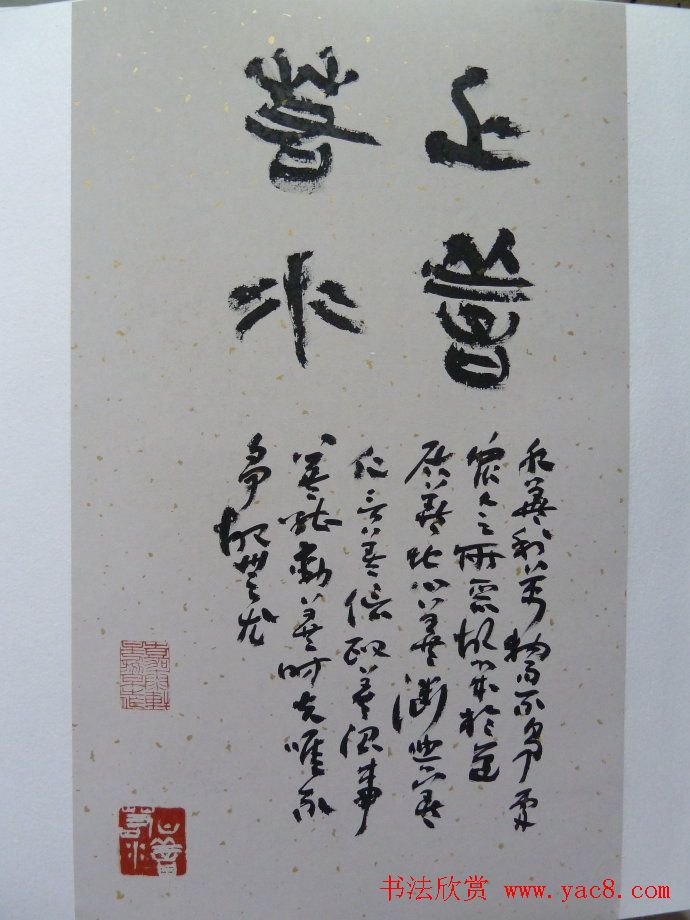 上善
若水
水善利萬物而不爭處
眾人之所惡故幾於道
居善地心善淵與善
仁言善信政善治事
善能動善時夫唯不
爭故無尤
上善
若水
书法欣赏 www.yac8.com